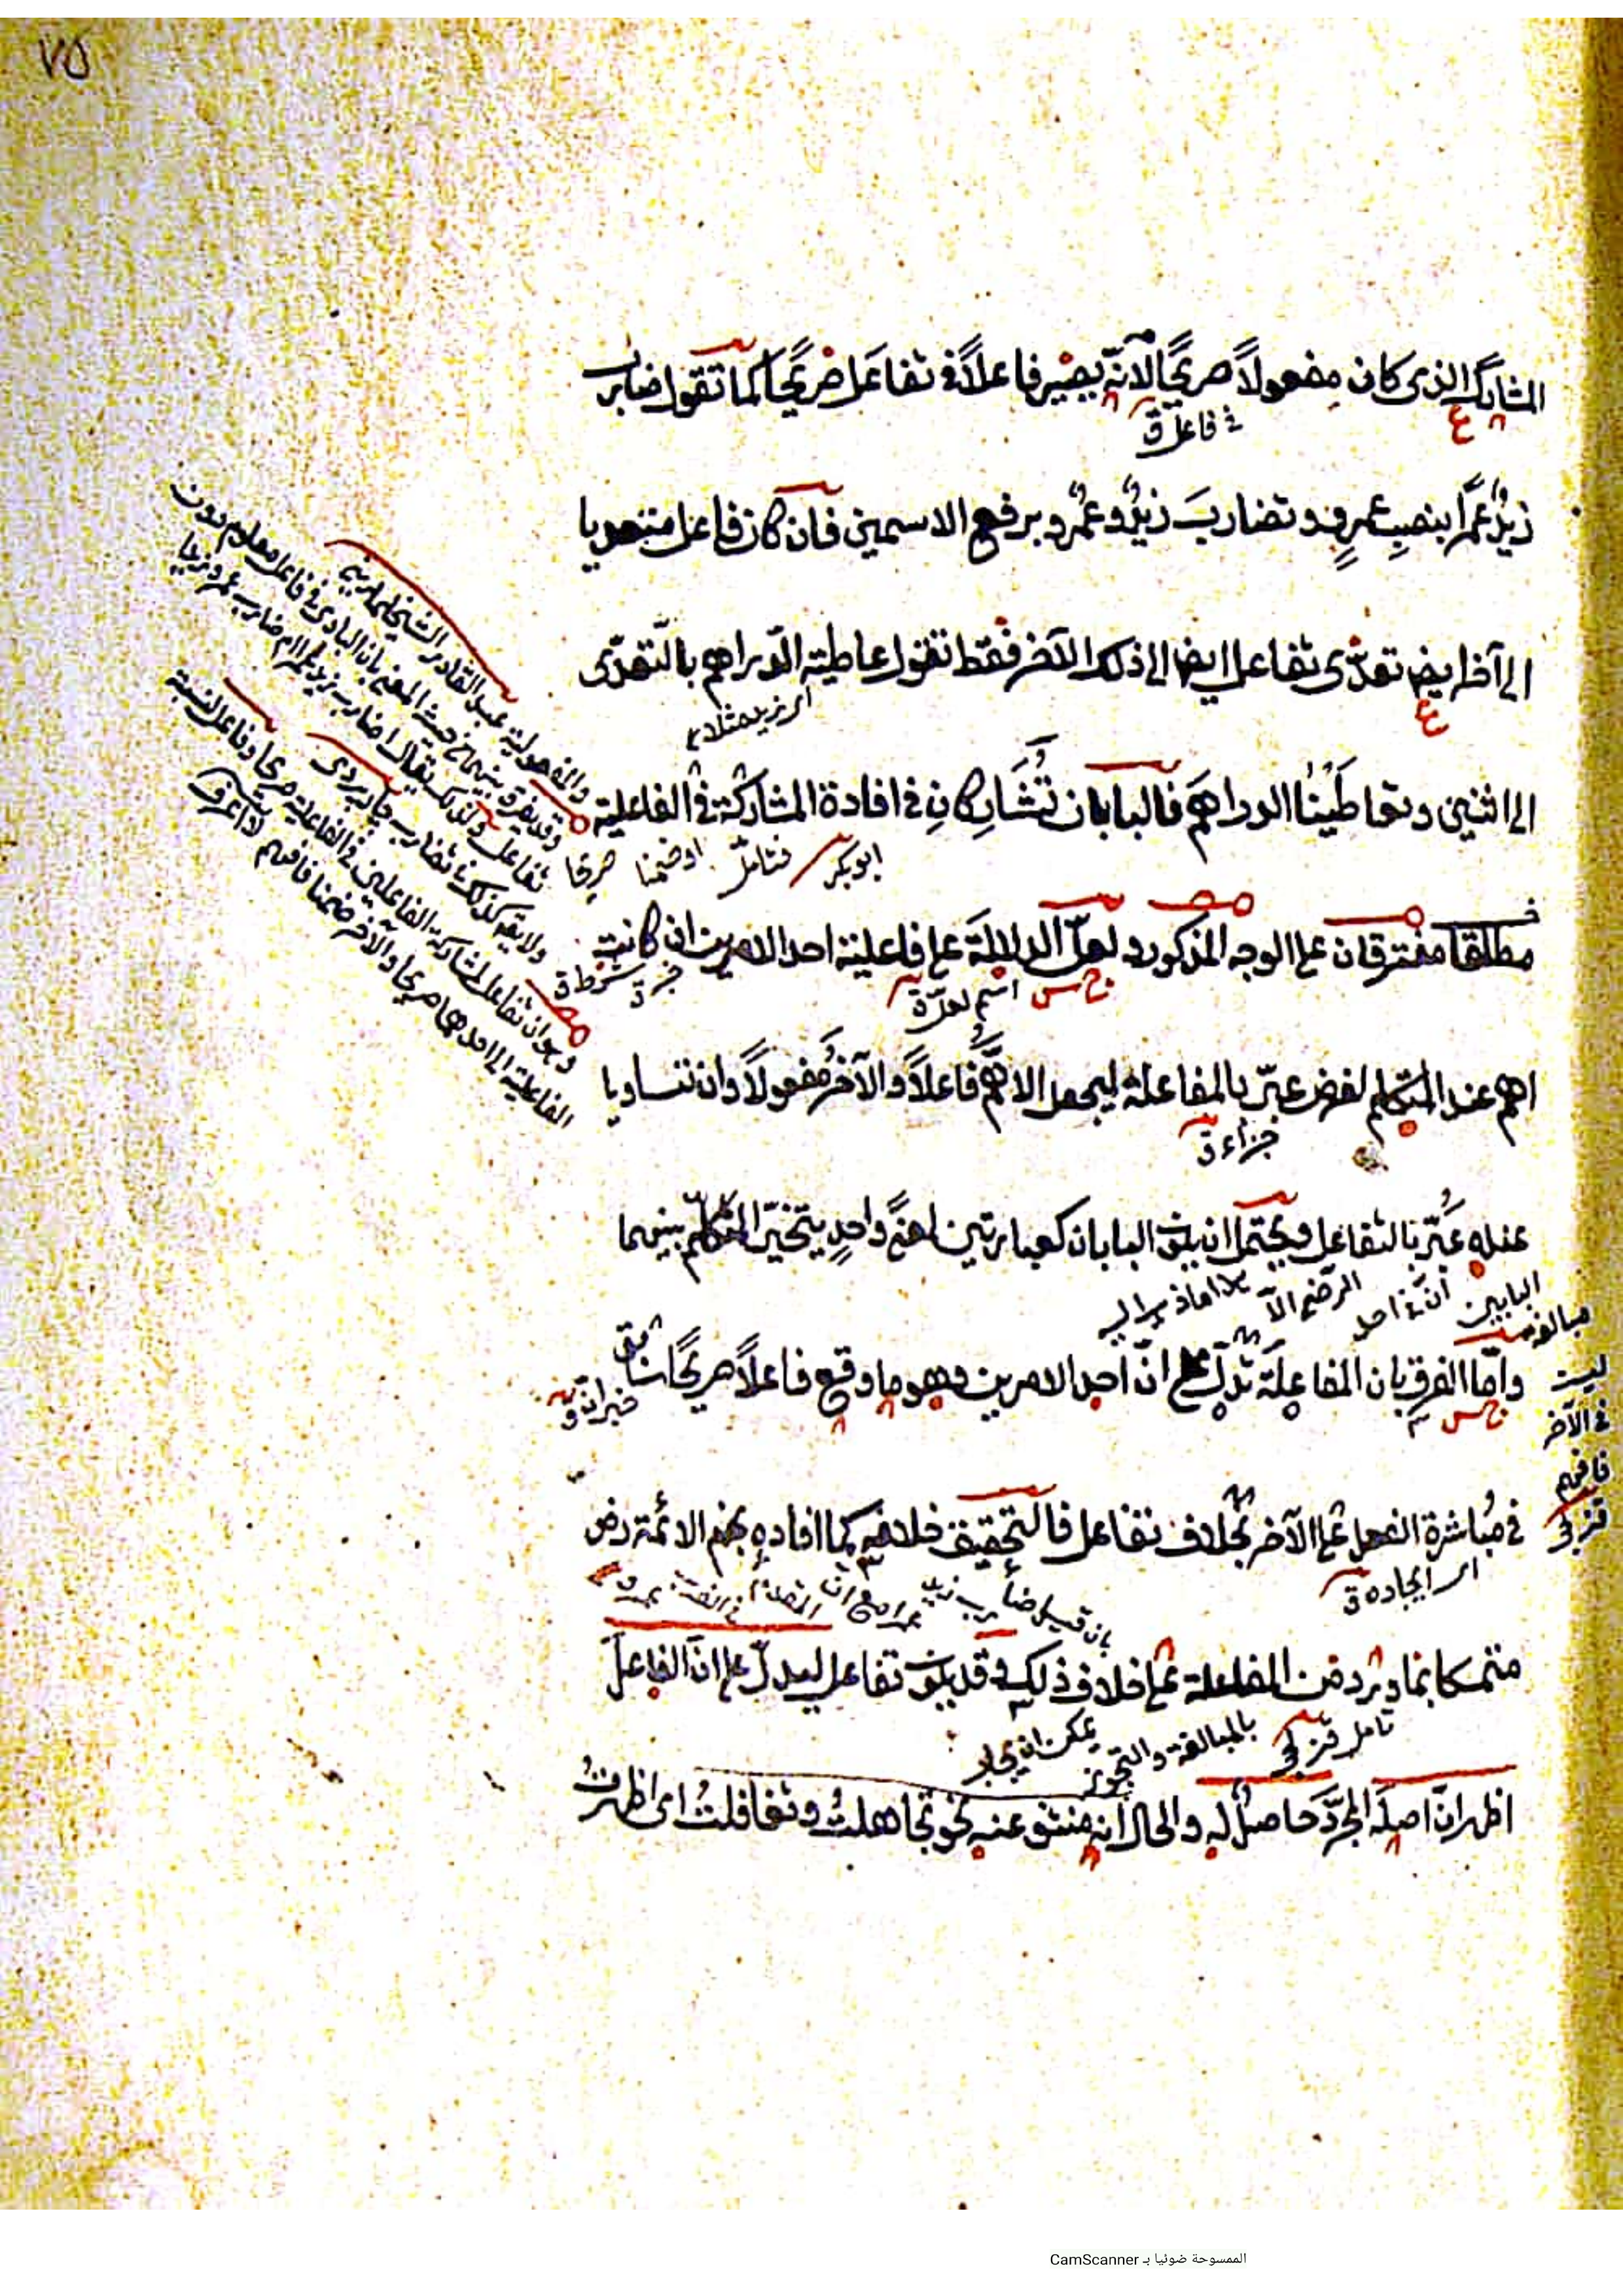 ٧٥
المشارك الذى كان مفعولاً صريحًا لانّه يصير فاعلاً فى تفاعَل صريحًا كما تقول ضارب
فى فاعل ق
زيدٌ عمرًا بنصبِ عمرٍو وتضاربَ زيدٌ وعمرٌو برفع الاسمين فان كان فاعل متعديا
الى آخر ايض تعدّى تفاعل ايض الى ذلك الآخر فقط تقول عاطيته الدراهم بالتعدّى
اى زيد مثلا
الى اثنين وتعاطَيْنا الدراهمَ فالبابان تُشَارِكانِ فى افادة المشاركة فى الفاعلية
ابوبكر فتامل اوضمنا صريحا
مطلقا مفترقان على الوجه المذكور ولعلّ الدلالةَ على فاعلية احد الامرين ان كانت
اسم لعلّ ق
شرط ق
اهم عند المتكلم لغرض عبّر بالمفاعلة ليجعل الاهمّ فاعلاً والآخرُ مفعولاً وان تساويا
جزاء ق
عنده عُبّر بالتفاعل ويحتمل ان يكون البابان كعبارتين لمعنًى واحدٍ يتخيّر المتكلّم بينهما
وامّا الفرق بان المفاعلَة تدلّ على انّ احد الامرين وهو ما وقع فاعلاً صريحًا سابق
خبر انّ ق
ليست
فى الآخر
فافهم
قزلجى
فى مُباشرة الفعل على الآخر بخلاف تفاعل فالتحقيق خلافه كما افاده نجم الائمة رض
اى ايجاده ق
متمسكا بما ورد من المفاعلة على خلاف ذلك وقد يكون تفاعل ليدلّ على انّ الفاعلَ
تامل قزلجى
بالمبالغة والتجوز
يمكن ان يجاب
اظهر انّ اصلَه المجرّدَ حاصلٌ له والحال انه منتفٍ عنه نحو تجاهلتُ وتغافلتُ اى اظهرتُ
والمفعولية عبد القادر الشيخ
وقد يفرق بينهما من حيث المعنى بان البادى فى فاعل معلوم دون
تفاعل ولذلك يقال اضارب زيد عمرا ام ضارب عمرو زيدا
ولا يقال كذلك فى تضارب جاربردى
وهو ان تفاعل لمشاركة الفاعلين فى الفاعلية صريحا وفاعل لنسبة
الفاعلية الى احدهما صريحا والآخر ضمنا فافهم
الممسوحة ضوئيا بـ CamScanner